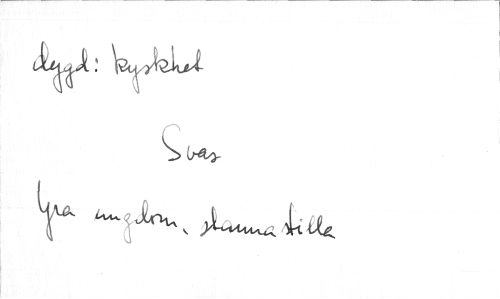 dygd: kyskhet
Svar
Yra ungdom, stanna stilla